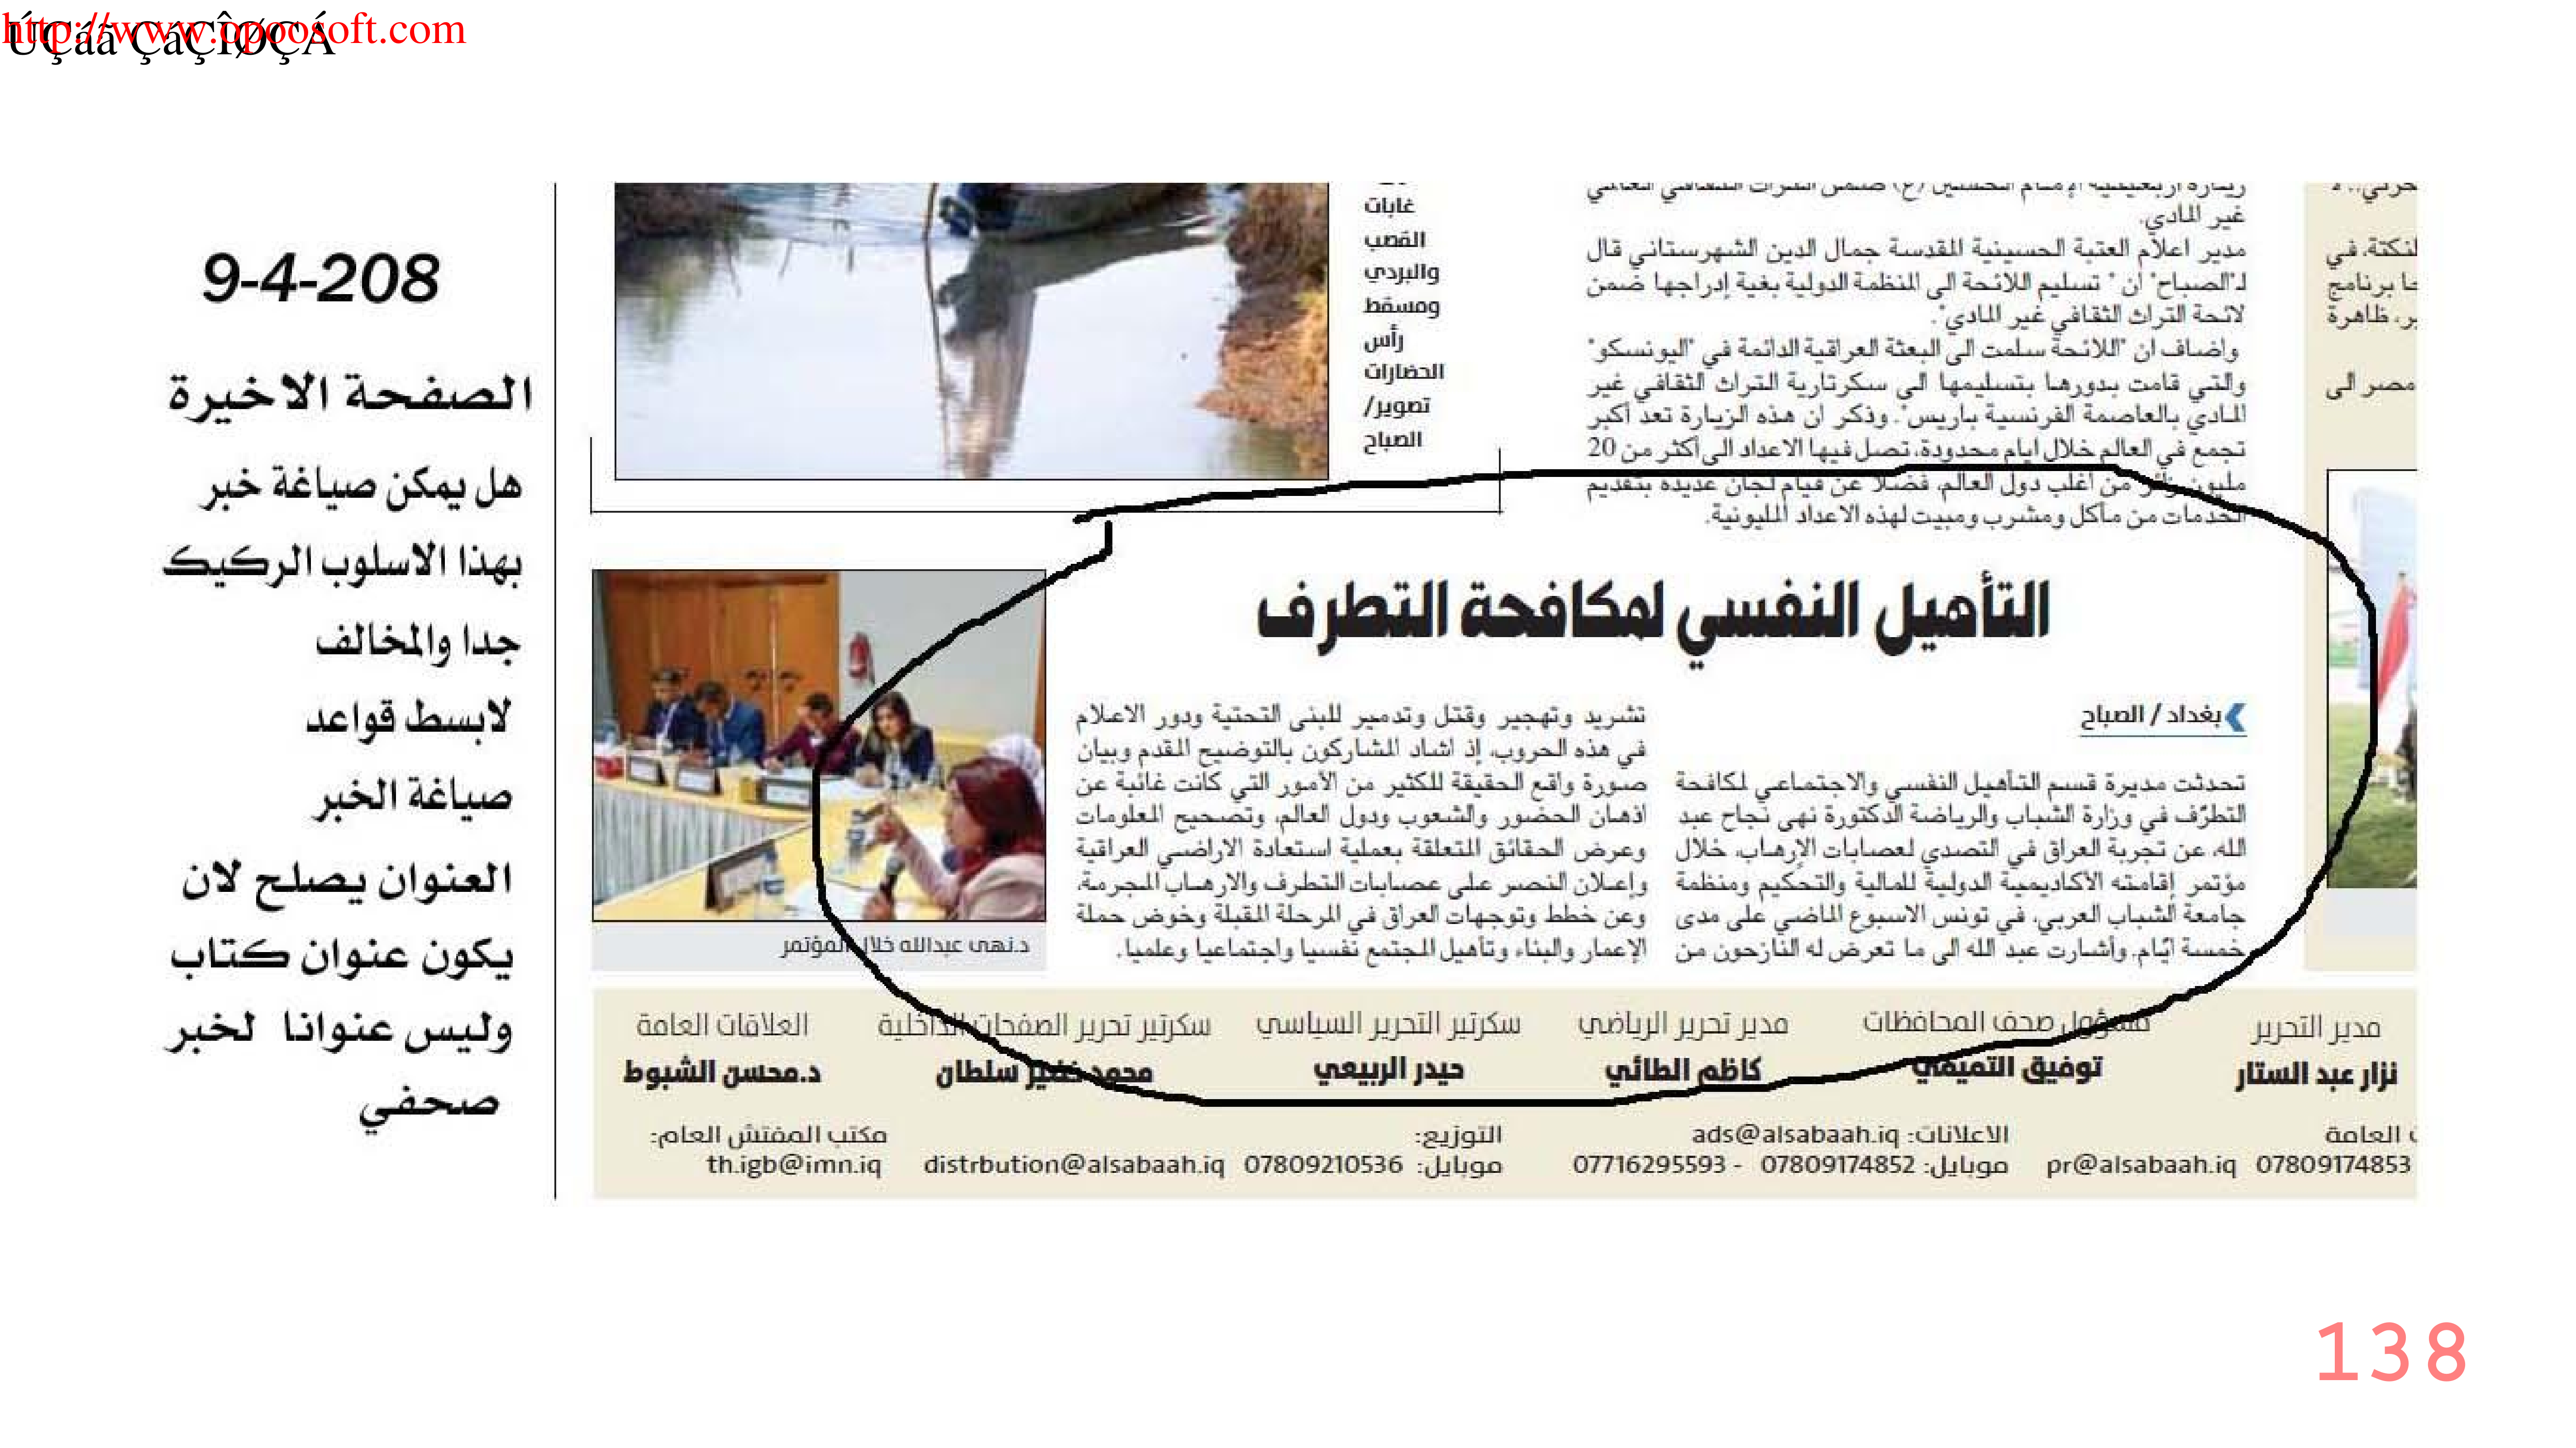 http://www.opoosoft.com
ÚÇáã ÇáÇÎØÇÁ
9-4-208
الصفحة الاخيرة
هل يمكن صياغة خبر
بهذا الاسلوب الركيك
جدا والمخالف
لابسط قواعد
صياغة الخبر
العنوان يصلح لان
يكون عنوان كتاب
وليس عنوانا لخبر
صحفي
غابات
القصب
والبردي
ومسقط
رأس
الحضارات
تصوير/
الصباح
غير المادي.
مدير اعلام العتبة الحسينية المقدسة جمال الدين الشهرستاني قال
لـ"الصباح" ان " تسليم اللائحة الى المنظمة الدولية بغية إدراجها ضمن
لائحة التراث الثقافي غير المادي".
واضاف ان "اللائحة سلمت الى البعثة العراقية الدائمة في "اليونسكو"
والتي قامت بدورها بتسليمها الى سكرتارية التراث الثقافي غير
المادي بالعاصمة الفرنسية باريس". وذكر ان هذه الزيارة تعد أكبر
تجمع في العالم خلال ايام محدودة، تصل فيها الاعداد الى أكثر من 20
مليون زائر من أغلب دول العالم، فضلا عن قيام لجان عديدة بتقديم
الخدمات من مأكل ومشرب ومبيت لهذه الاعداد المليونية.
لنكتة، في
برنامج
ظاهرة
مصر الى
التأهيل النفسي لمكافحة التطرف
بغداد / الصباح
تحدثت مديرة قسم التأهيل النفسي والاجتماعي لمكافحة
التطرّف في وزارة الشباب والرياضة الدكتورة نهى نجاح عبد
الله، عن تجربة العراق في التصدي لعصابات الإرهاب، خلال
مؤتمر إقامته الأكاديمية الدولية للمالية والتحكيم ومنظمة
جامعة الشباب العربي، في تونس الاسبوع الماضي على مدى
خمسة ايّام. وأشارت عبد الله الى ما تعرض له النازحون من
تشريد وتهجير وقتل وتدمير للبنى التحتية ودور الاعلام
في هذه الحروب، إذ اشاد المشاركون بالتوضيح المقدم وبيان
صورة واقع الحقيقة للكثير من الأمور التي كانت غائبة عن
اذهان الحضور والشعوب ودول العالم، وتصحيح المعلومات
وعرض الحقائق المتعلقة بعملية استعادة الاراضي العراقية
وإعلان النصر على عصابات التطرف والارهاب المجرمة،
وعن خطط وتوجهات العراق في المرحلة المقبلة وخوض حملة
الإعمار والبناء وتأهيل المجتمع نفسيا واجتماعيا وعلميا.
د.نهى عبدالله خلال المؤتمر
مدير التحرير
نزار عبد الستار
مسؤول صحف المحافظات
توفيق التميمي
مدير تحرير الرياضي
كاظم الطائي
سكرتير التحرير السياسي
حيدر الربيعي
سكرتير تحرير الصفحات الداخلية
محمد خضير سلطان
العلاقات العامة
د.محسن الشبوط
العامة
pr@alsabaah.iq 07809174853
الاعلانات: ads@alsabaah.iq
موبايل: 07809174852 - 07716295593
التوزيع:
موبايل: 07809210536 distrbution@alsabaah.iq
مكتب المفتش العام:
th.igb@imn.iq
138